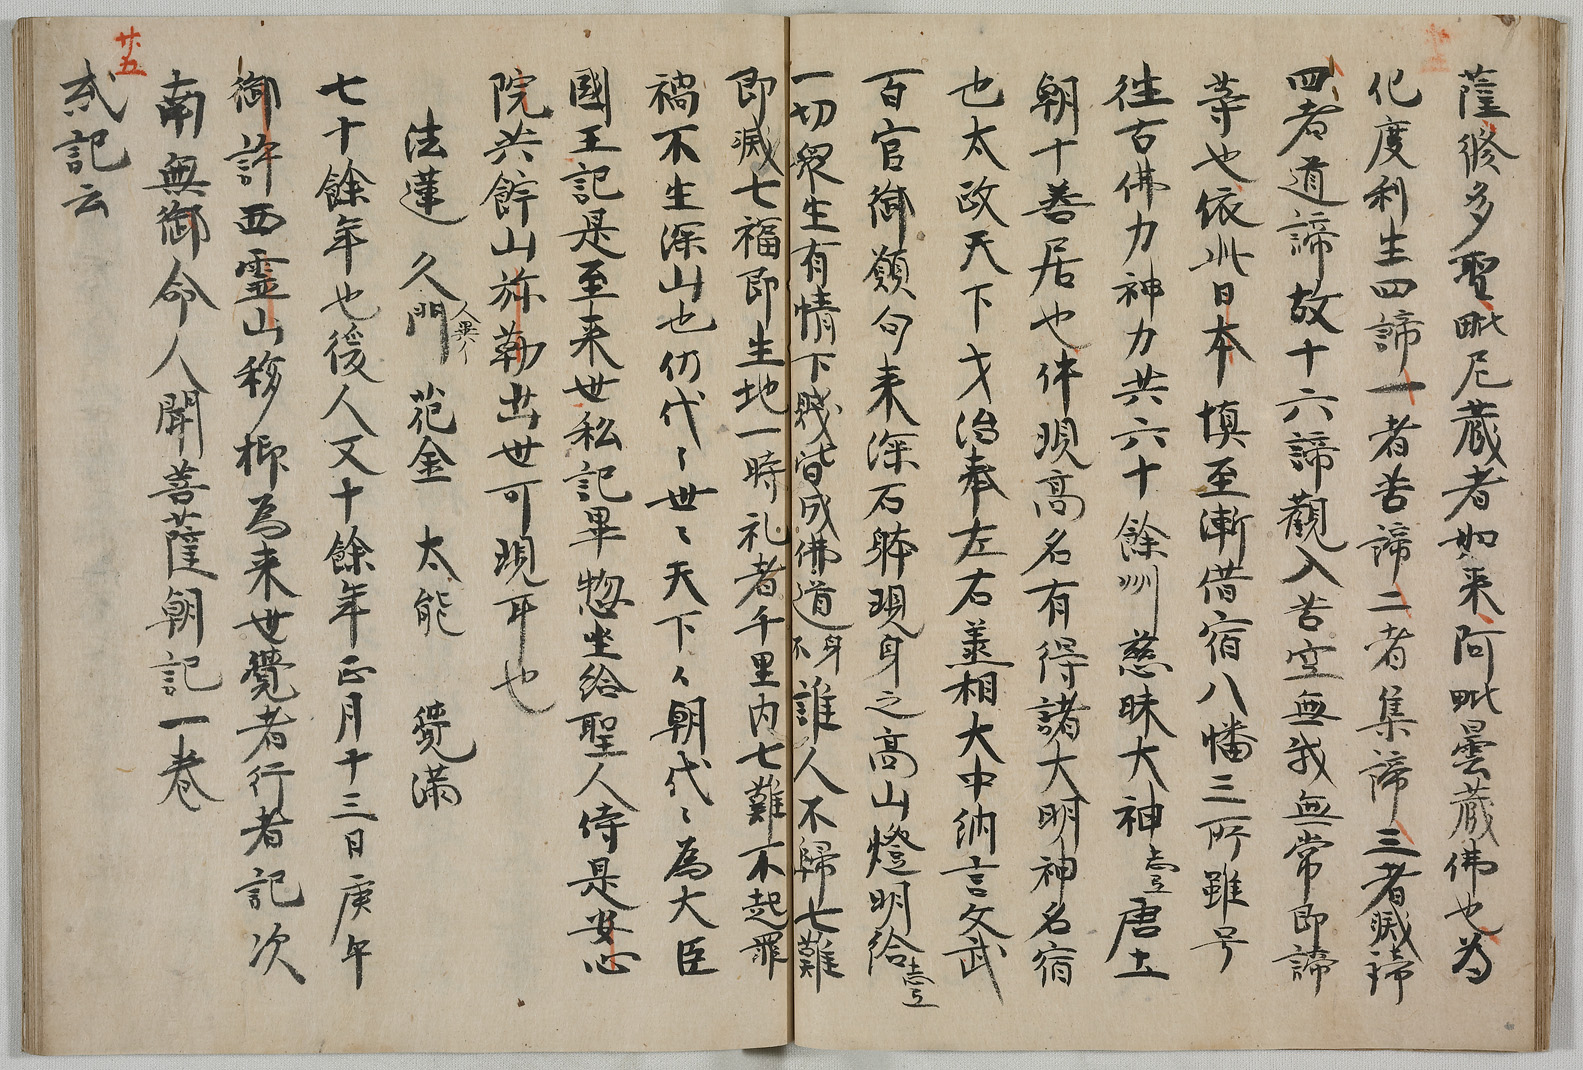 薩修多聖毗尼蔵者如来阿毗曇蔵佛也為
化度利生四諦一者苦諦二者集諦三者滅諦
四者道諦故十六諦觀入苦空無我無常即諦
等也依此日本慎至漸借宿八幡三所雖号
往古佛力神力共六十餘州慈昧大神唐土
朝十善居也件現髙名有得諸大明神名宿
也太政天下才治奉左右丞相大中納言文武
百官御願句来深石躰現身之髙山燈明給
一切衆生有情下賤皆成佛道身不誰人不歸七難
即滅七福即生地一時礼者千里内七難不起罪
禍不生深山也仍代々世々天下々朝代々為大臣
國王記是至来世私記畢惣坐給聖人侍是安心
院共䬻山弥勒出世可現耳也
法蓮 久門 花金 太能 覺満
七十餘年也後人又十餘年正月十三日庚午
御許西霊山移柳為来世覺者行者記次
南無御命人聞菩薩朝記一巻
貳記云
廿五